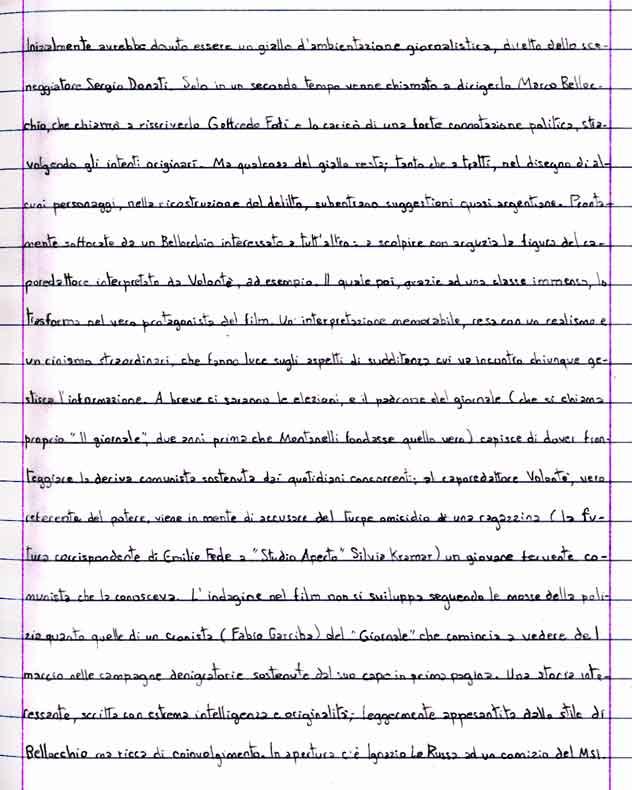 Inizialmente avrebbe dovuto essere un giallo d'ambientazione giornalistica, diretto dallo sce-
neggiatore Sergio Donati. Solo in un secondo tempo venne chiamato a dirigerlo Marco Belloc-
chio, che chiamò a riscriverlo Goffredo Fofi e lo caricò di una forte connotazione politica, stra-
volgendo gli intenti originari. Ma qualcosa del giallo resta; tanto che a tratti, nel disegno di al-
cuni personaggi, nella ricostruzione del delitto, subentrano suggestioni quasi argentiane. Pronta-
mente soffocate da un Bellocchio interessato a tutt'altro: a scolpire con arguzia la figura del ca-
poredattore interpretato da Volontè, ad esempio. Il quale poi, grazie ad una classe immensa, lo
trasforma nel vero protagonista del film. Un'interpretazione memorabile, resa con un realismo e
un cinismo straordinari, che fanno luce sugli aspetti di sudditanza cui va incontro chiunque ge-
stisca l'informazione. A breve ci saranno le elezioni, e il padrone del giornale (che si chiama
proprio "Il giornale", due anni prima che Montanelli fondasse quello vero) capisce di dover fron-
teggiare la deriva comunista sostenuta dai quotidiani concorrenti; al caporedattore Volontè, vero
referente del potere, viene in mente di accusare del turpe omicidio di una ragazzina (la fu-
tura corrispondente di Emilio Fede a "Studio Aperto" Silvia Kramar) un giovane fervente co-
munista che la conosceva. L'indagine nel film non si sviluppa seguendo le mosse della poli-
zia quanto quelle di un cronista (Fabio Garriba) del "Giornale" che comincia a vedere del
marcio nelle campagne denigratorie sostenute dal suo capo in prima pagina. Una storia inte-
ressante, scritta con estrema intelligenza e originalità; leggermente appesantita dallo stile di
Bellocchio ma ricca di coinvolgimento. In apertura c'è Ignazio La Russa ad un comizio del MSI.